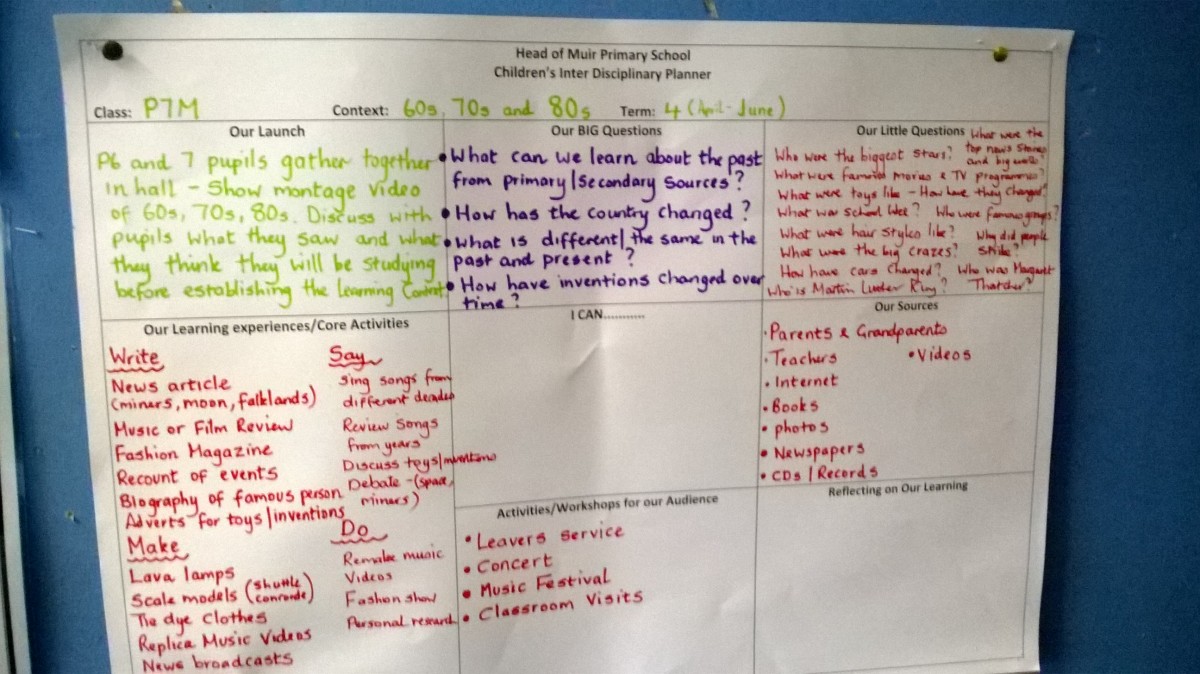 Head of Muir Primary School
Children's Inter Disciplinary Planner
Class: P7M Context: 60s, 70s and 80s Term: 4 (April - June)
Our Launch
P6 and 7 pupils gather together
in hall - Show montage video
of 60s, 70s, 80s. Discuss with
pupils what they saw and what
they think they will be studying
before establishing the Learning Context
Our BIG Questions
• What can we learn about the past
from primary/Secondary Sources?
• How has the country changed?
• What is different/the same in the
past and present?
• How have inventions changed over
time?
Our Little Questions
What were the
top news stories
and big
Who were the biggest stars?
What were famous movies & TV programmes?
What were toys like - How have they changed?
What was school like? Who were famous groups?
What were hair styles like?
Why did people
strike?
What were the big crazes?
How have cars changed?
Who was Margaret
Thatcher?
Who is Martin Luther King?
Our Learning experiences/Core Activities
Write
News article
(miners, moon, falklands)
Music or Film Review
Fashion Magazine
Recount of events
Biography of famous person
Adverts for toys/inventions
Say
Sing songs from
different decades
Review Songs
from years
Discuss toys/inventions
Debate - (space,
miners)
Make
Lava lamps
Scale models (shuttle
concorde)
Tie dye clothes
Replica Music Videos
News broadcasts
Do
Remake music
Videos
Fashion show
Personal research
I CAN...........
Activities/Workshops for our Audience
• Leavers service
• Concert
• Music Festival
• Classroom Visits
Our Sources
• Parents & Grandparents
• Teachers • Videos
• Internet
• Books
• photos
• Newspapers
• CDs / Records
Reflecting on Our Learning